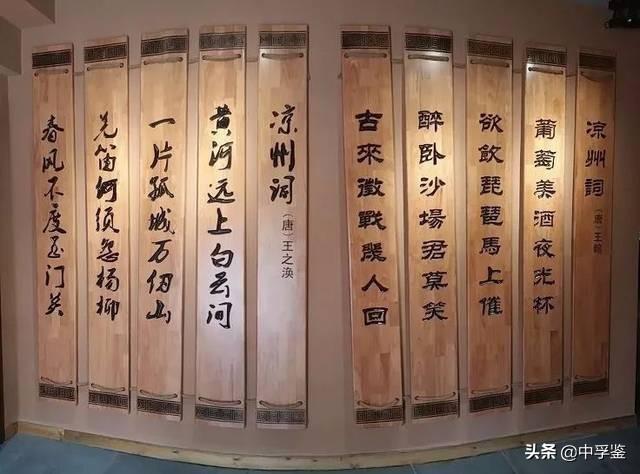 凉州詞
（唐）王翰
葡萄美酒夜光杯
欲飲琵琶馬上催
醉卧沙場君莫笑
古來徵戰幾人回
凉州词
（唐）王之涣
黄河远上白云间
一片孤城万仞山
羌笛何须怨杨柳
春风不度玉门关
头条 @中孚鉴